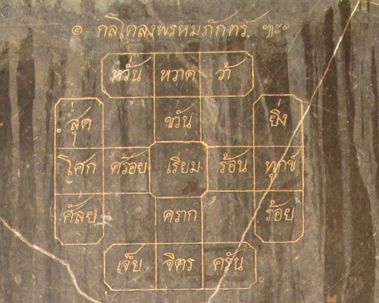 ๑ กลโคลงพรหมภักตร์ ฯ๛
หวั่น หวาด ว้า
สุด ขวัน ยิ่ง
โศก คร้อย เรียม ร้อน ทุกข์
ศัลย คราก ร้อย
เจ็บ จิตร ครัน